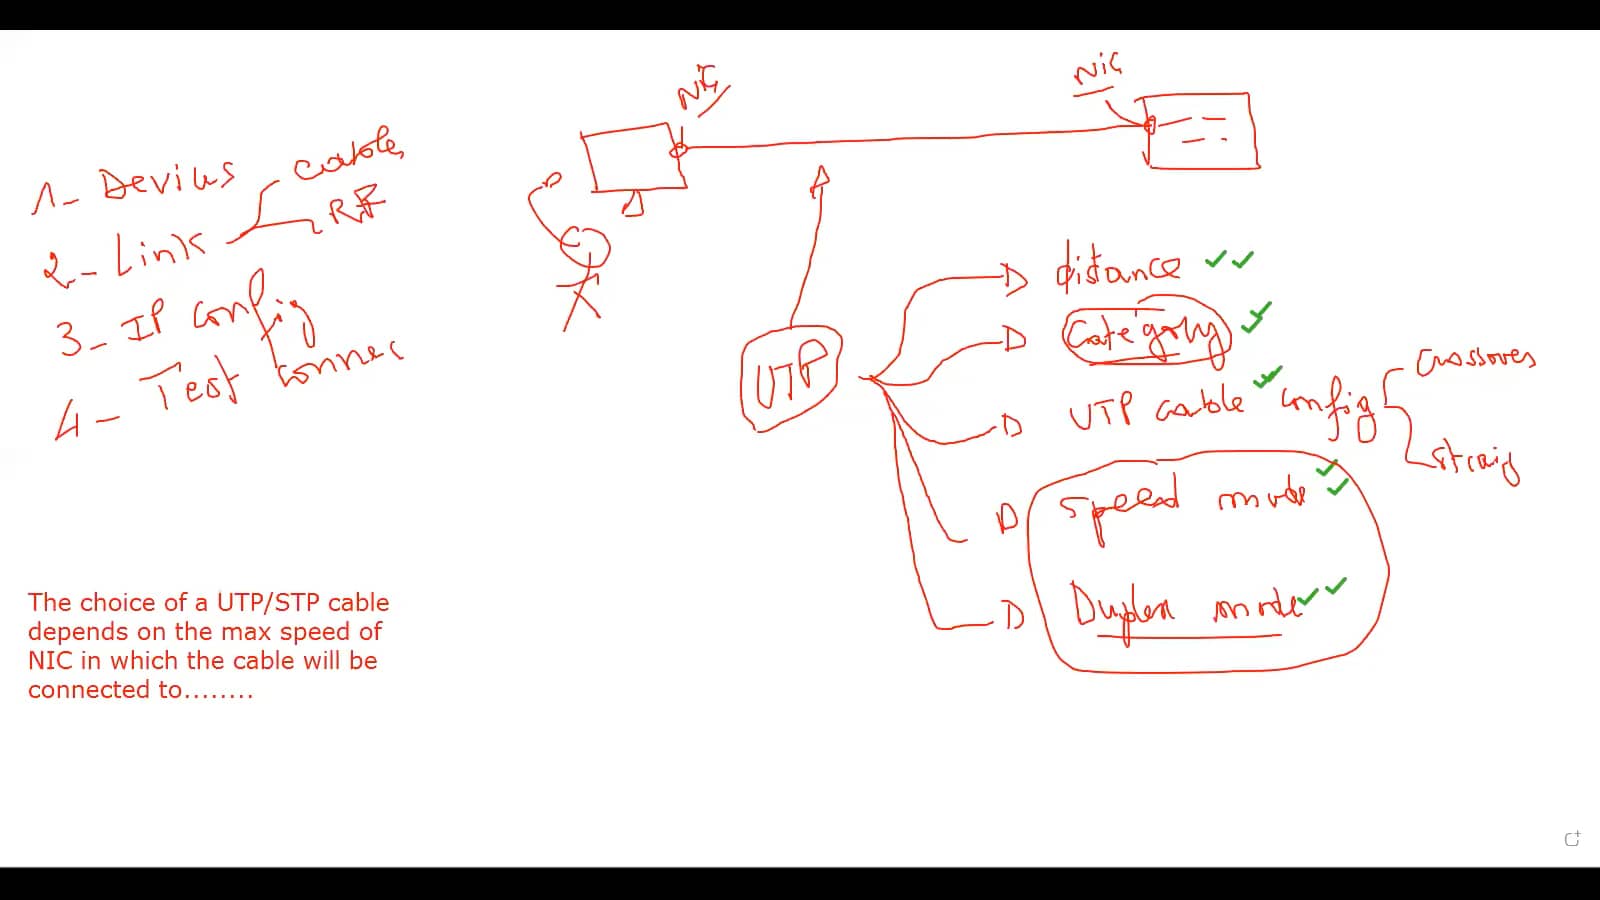 NIC
NIC
1- Devices
Cables
RF
2- Link
3- IP config
4- Test connec
UTP
distance
Category
UTP cable config
Crossover
straig
Speed mode
Duplex mode
The choice of a UTP/STP cable
depends on the max speed of
NIC in which the cable will be
connected to........